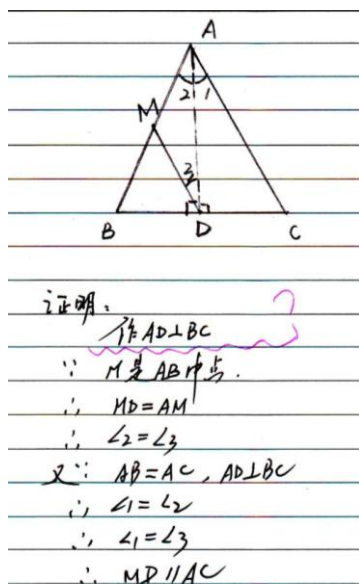 A
2 1
M
3
B D C
证明：
作AD⊥BC
∵ M是AB中点.
∴ MD=AM
∴ ∠2=∠3
又∵ AB=AC, AD⊥BC
∴ ∠1=∠2
∴ ∠1=∠3
∴ MD∥AC